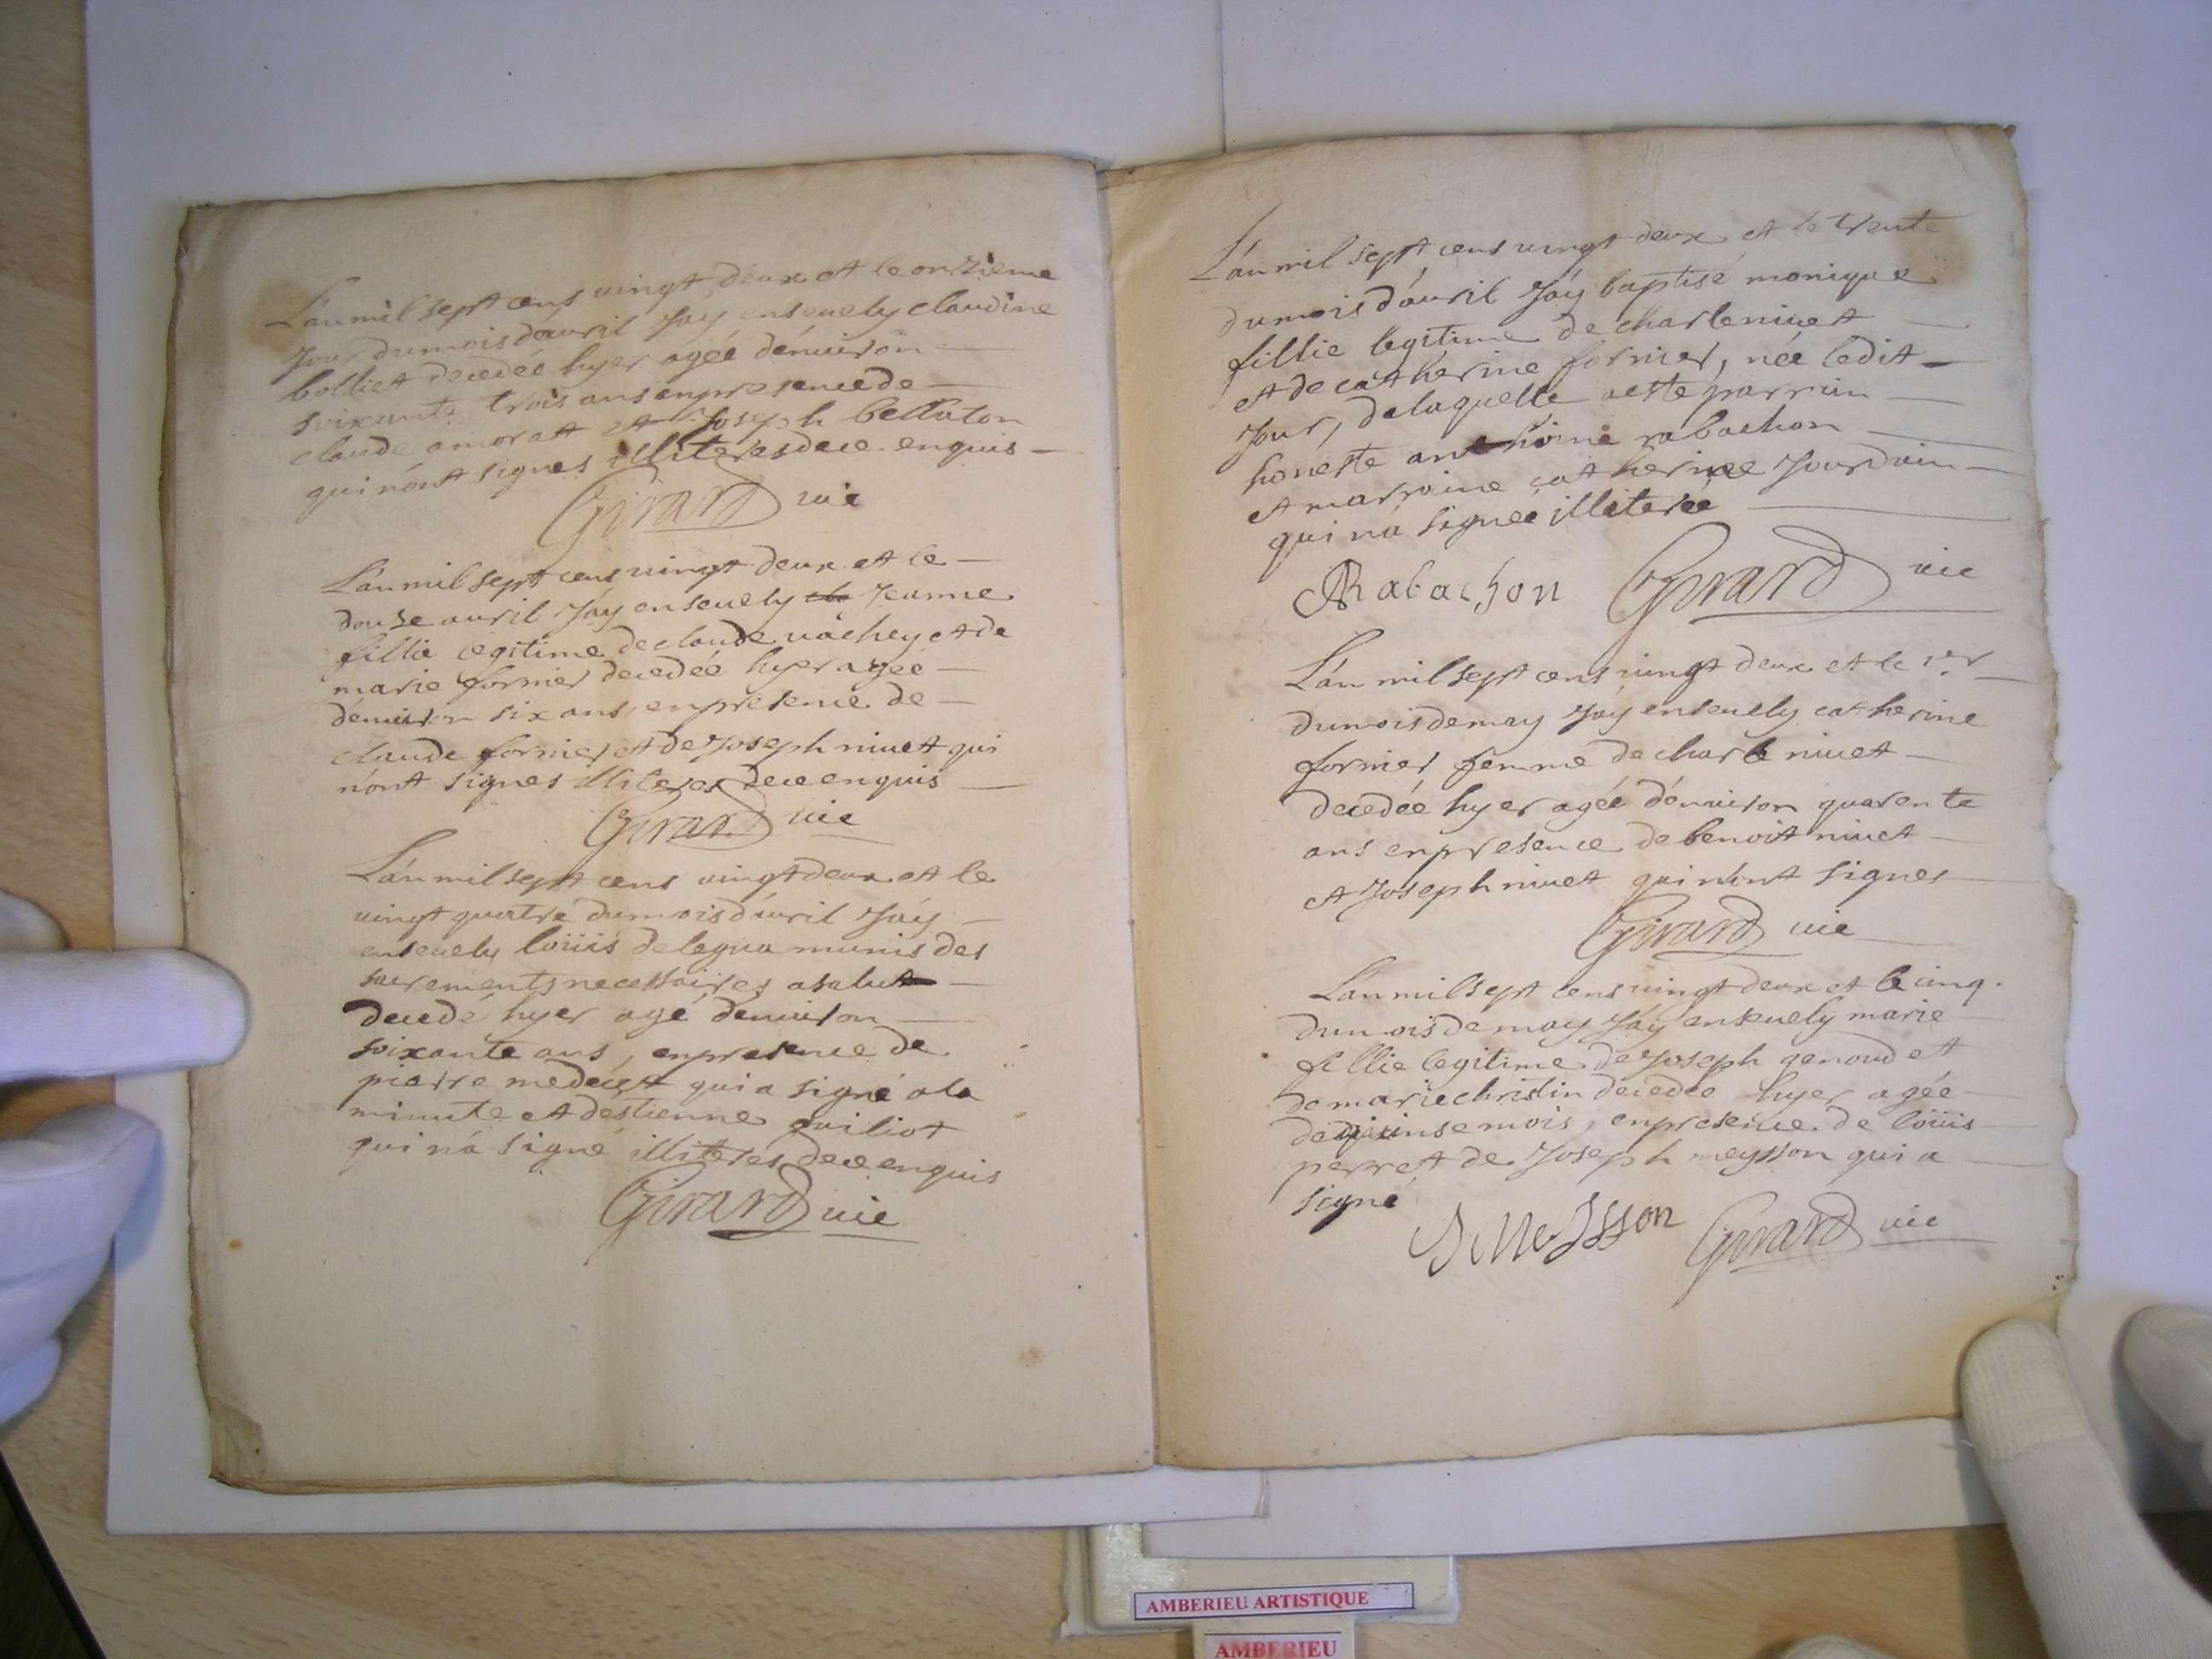 L'an mil sept cens vingt deux et le onzieme
Jour du mois d'avril J'ay ensevely claudine
bolliet decedée hyer agée d'environ
soixante trois ans en presence de
claude amoratt et Joseph bellaton
qui n'ont signes illiteres de ce enquis
Girard vic
L'an mil sept cens vingt deux et le
douse avril J'ay ensevely Jeanne
fillie legitime de claude vachey et de
marie fornier decedée hyer agée
d'environ six ans, en presence de
claude fornier et de Joseph nivet qui
n'ont signes illiteres de ce enquis
Girard vic
L'an mil sept cens vingt deux et le
vingt quatre du mois d'avril J'ay
ensevely loüis delegua munis des
sacrements necessaires a salut
decedé hyer agé d'environ
soixante ans, en presence de
pierre qui a signé a la
minute et d'estienne guiliot
qui n'a signé illiteres de ce enquis
Girard vic
L'an mil sept cens vingt deux et le trente
du mois d'avril J'ay baptisé monique
fillie legitime de charle nivet
et de catherine fornier, née ledit
Jour, de laquelle a este parrain
honeste anthoine rabachon
et marraine catherine Jourdain
qui n'a signée illiterée
Rabachon Girard vic
L'an mil sept cens vingt deux et le 1er
du mois de may J'ay ensevely catherine
fornier femme de charle nivet
decedée hyer agée d'environ quarente
ans en presence de benoit nivet
et Joseph nivet qui n'ont signes
Girard vic
L'an mil sept cens vingt deux et le cinq.
du mois de may J'ay ensevely marie
fillie legitime de Joseph genoud et
de marie christin decedée hyer agée
de quinse mois, en presence de loüis
perret de Joseph meysson qui a
signé
J Meysson Girard vic
AMBERIEU ARTISTIQUE
AMBERIEU